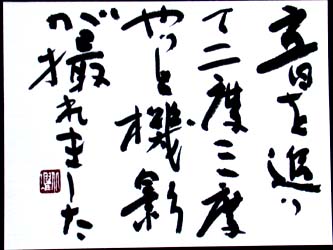 音を追い
一二度三度
やっと機影
が撮れました